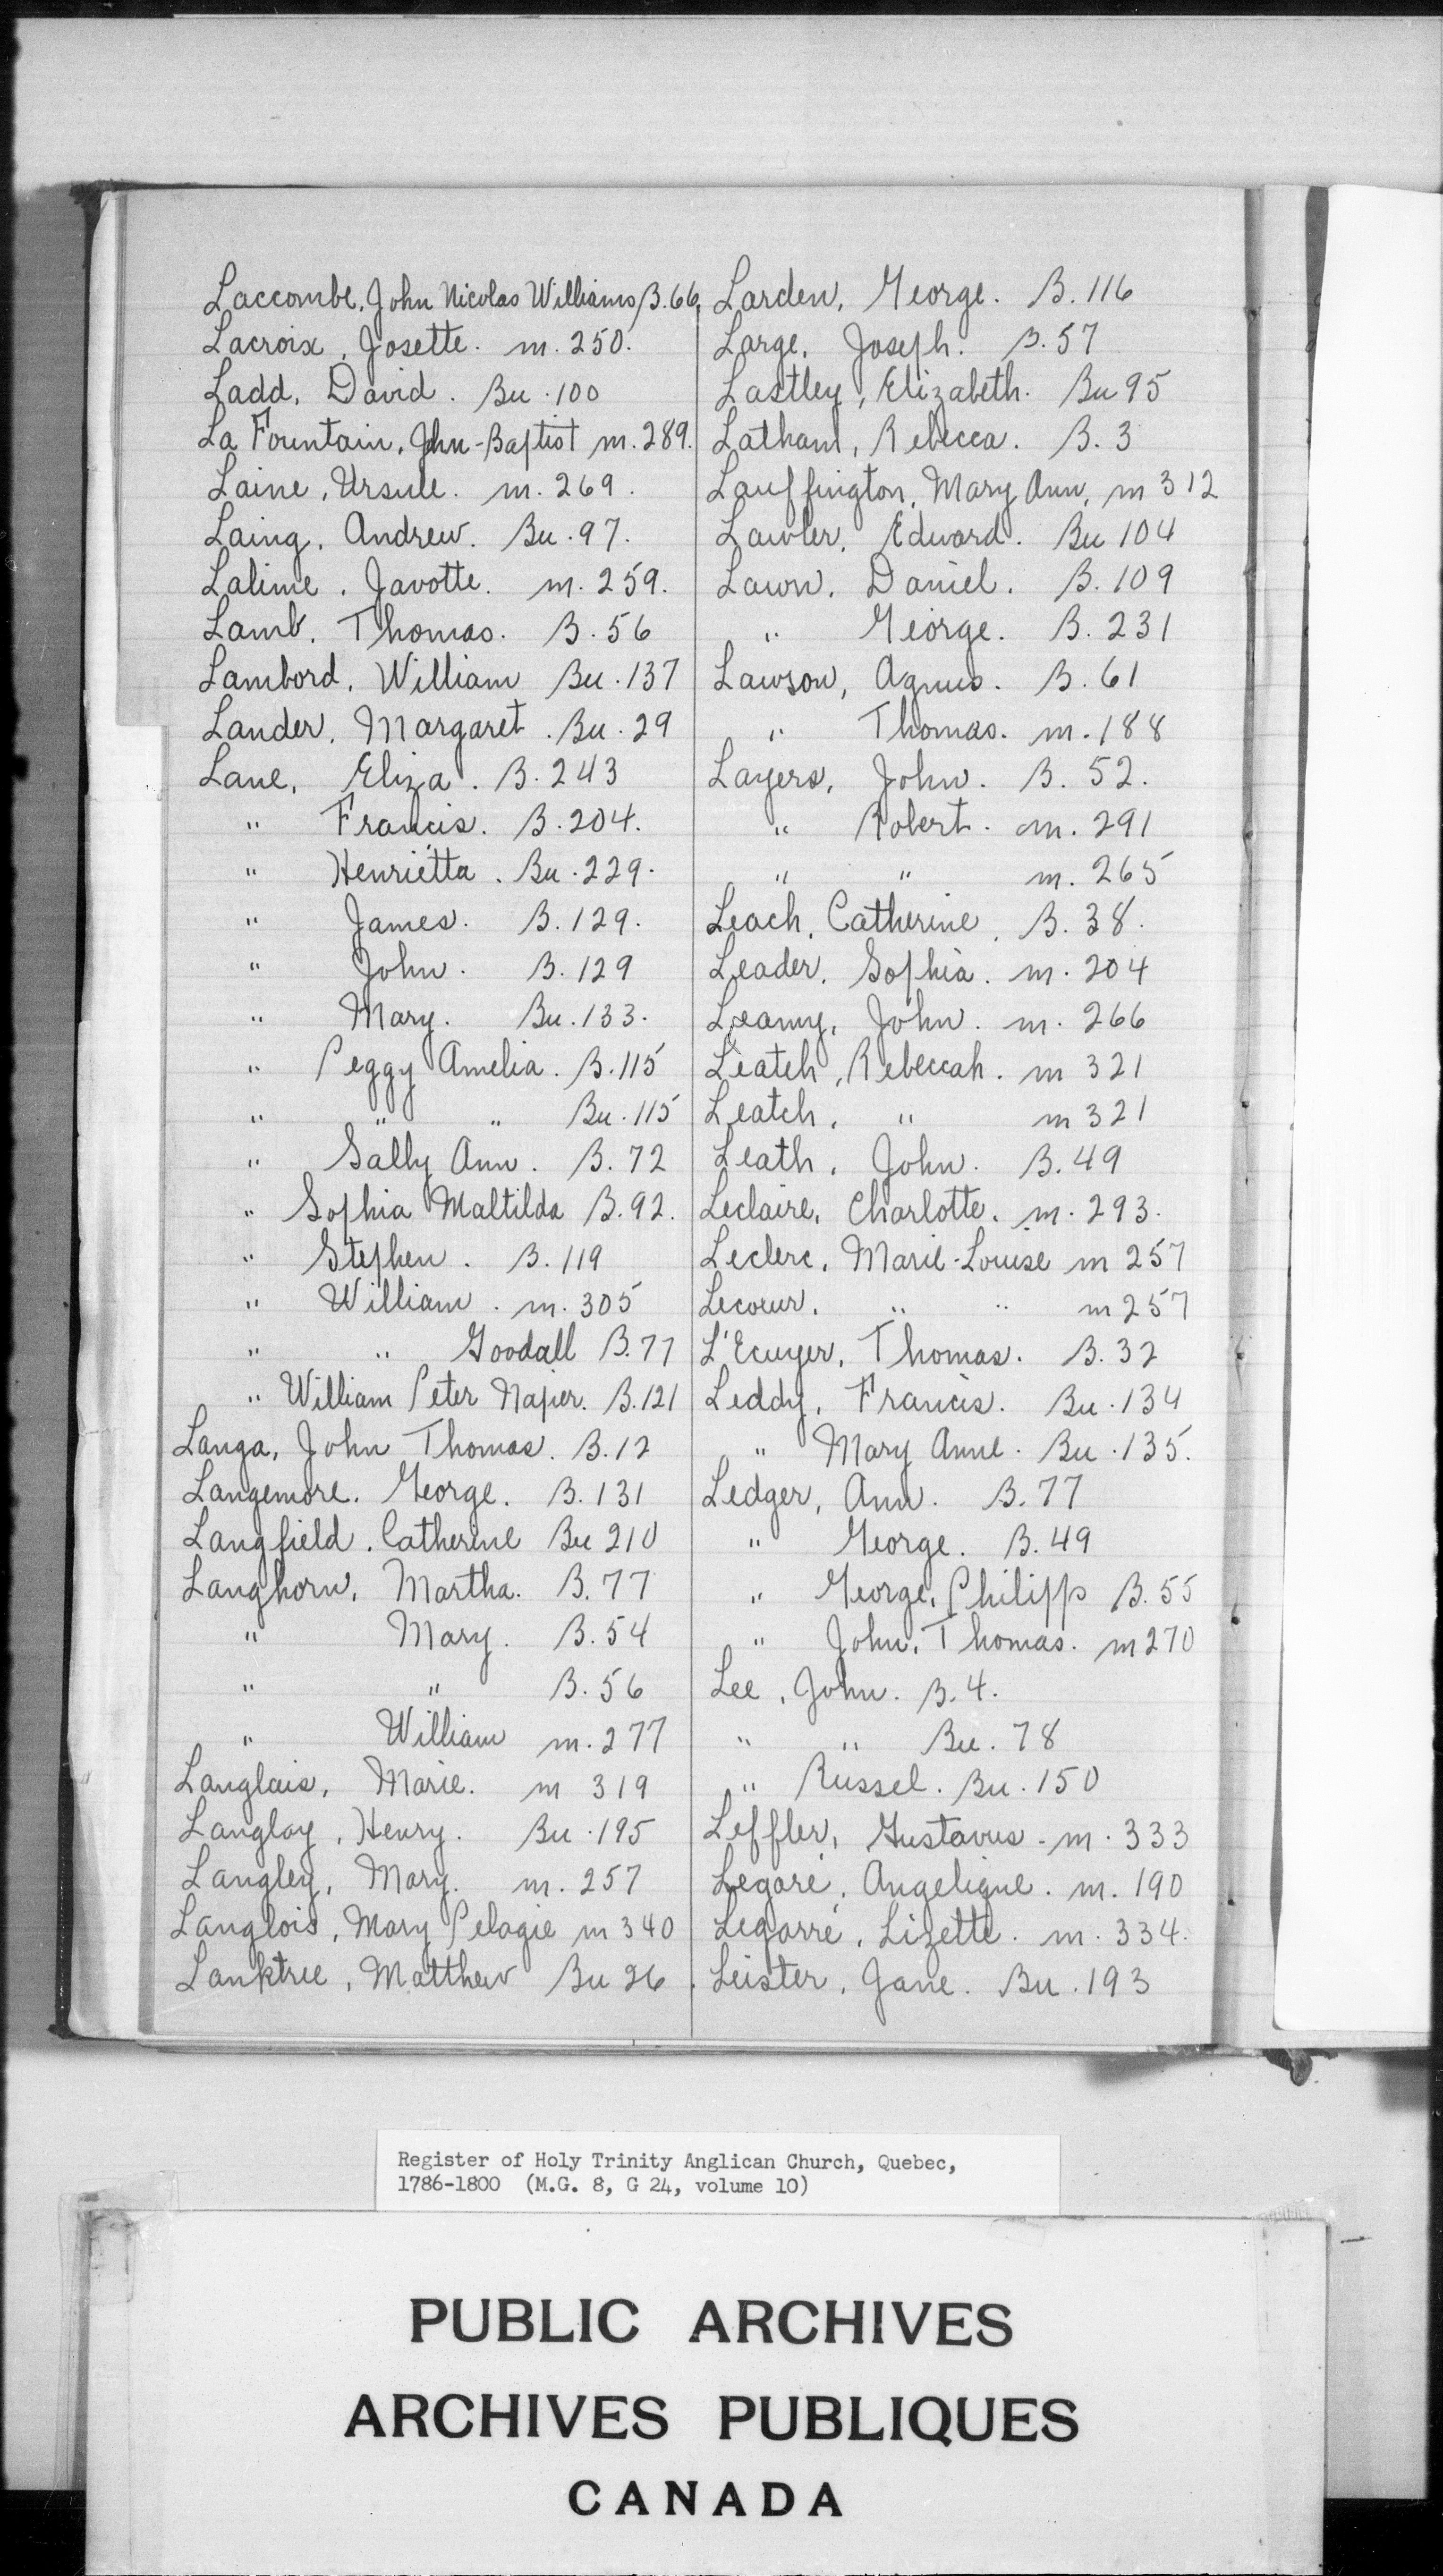 Laccombe, John Nicolas Williams B. 66.
Lacroix, Josette. m. 250.
Ladd, David. Bu. 100
La Fountain, John-Baptist m. 289.
Laine, Ursule. m. 269.
Laing, Andrew. Bu. 97.
Lalime, Javotte. m. 259.
Lamb, Thomas. B. 56
Lambord, William Bu. 137
Lander, Margaret. Bu. 29
Lane, Eliza. B. 243
" Francis. B. 204.
" Henrietta. Bu. 229.
" James. B. 129.
" John. B. 129
" Mary. Bu. 133.
" Peggy Amelia. B. 115
" " " Bu. 115
" Sally Ann. B. 72
" Sophia Maltilda B. 92.
" Stephen. B. 119
" William. m. 305
" " Goodall B. 77
" William Peter Napier. B. 121
Langa, John Thomas. B. 12
Langemore. George. B. 131
Langfield. Catherine Bu 210
Langhorn, Martha. B. 77
" Mary. B. 54
" " B. 56
" William m. 277
Langlais, Marie. m 319
Langlay, Henry. Bu. 195
Langley, Mary. m. 257
Langlois, Mary Pelagie m 340
Lanktree, Matthew Bu 26.
Larden, George. B. 116
Large, Joseph. B. 57
Lastley, Elizabeth. Bu 95
Latham, Rebecca. B. 3
Lauffington, Mary Ann, m 312
Lawler, Edward. Bu 104
Lawn, Daniel. B. 109
" George. B. 231
Lawson, Agnus. B. 61
" Thomas. m. 188
Layers, John. B. 52.
" Robert. m. 291
" " m. 265
Leach, Catherine, B. 38.
Leader, Sophia. m. 204
Leanny, John. m. 266
Leatch, Rebeccah. m 321
Leatch, " m 321
Leath, John. B. 49
Leclaire, Charlotte. m. 293.
Leclerc, Marie-Louise m 257
Lecoeur, " " m 257
L'Ecuyer, Thomas. B. 32
Leddy, Francis. Bu. 134
" Mary Anne. Bu. 135.
Ledger, Ann. B. 77
" George. B. 49
" George, Philipp B. 55
" John, Thomas. m 270
Lee, John. B. 4.
" " Bu. 78
" Russel. Bu. 150
Leffler, Gustavus. m. 333
Legaré, Angelique. m. 190
Legarré, Lizette. m. 334.
Leister, Jane. Bu. 193
Register of Holy Trinity Anglican Church, Quebec,
1786-1800 (M.G. 8, G 24, volume 10)
PUBLIC ARCHIVES
ARCHIVES PUBLIQUES
CANADA